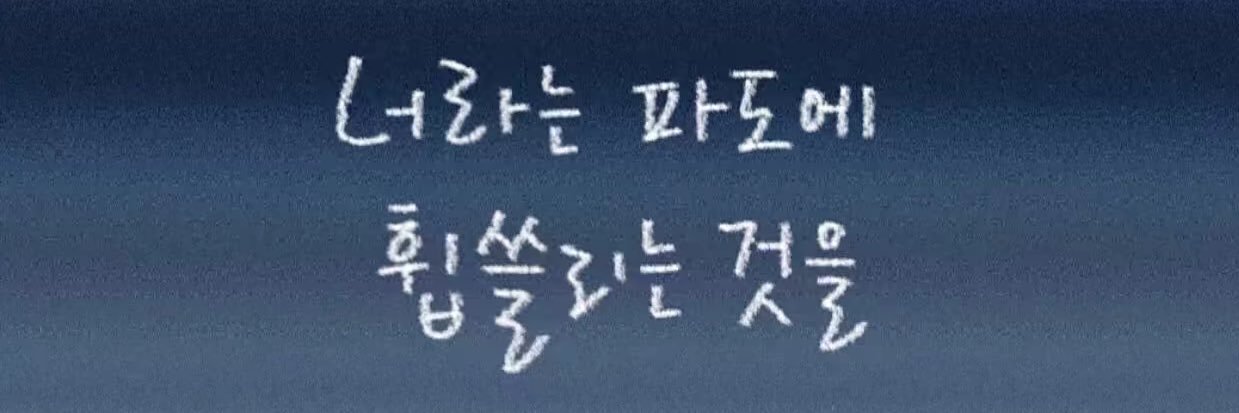 너라는 파도에
휩쓸리는 것을